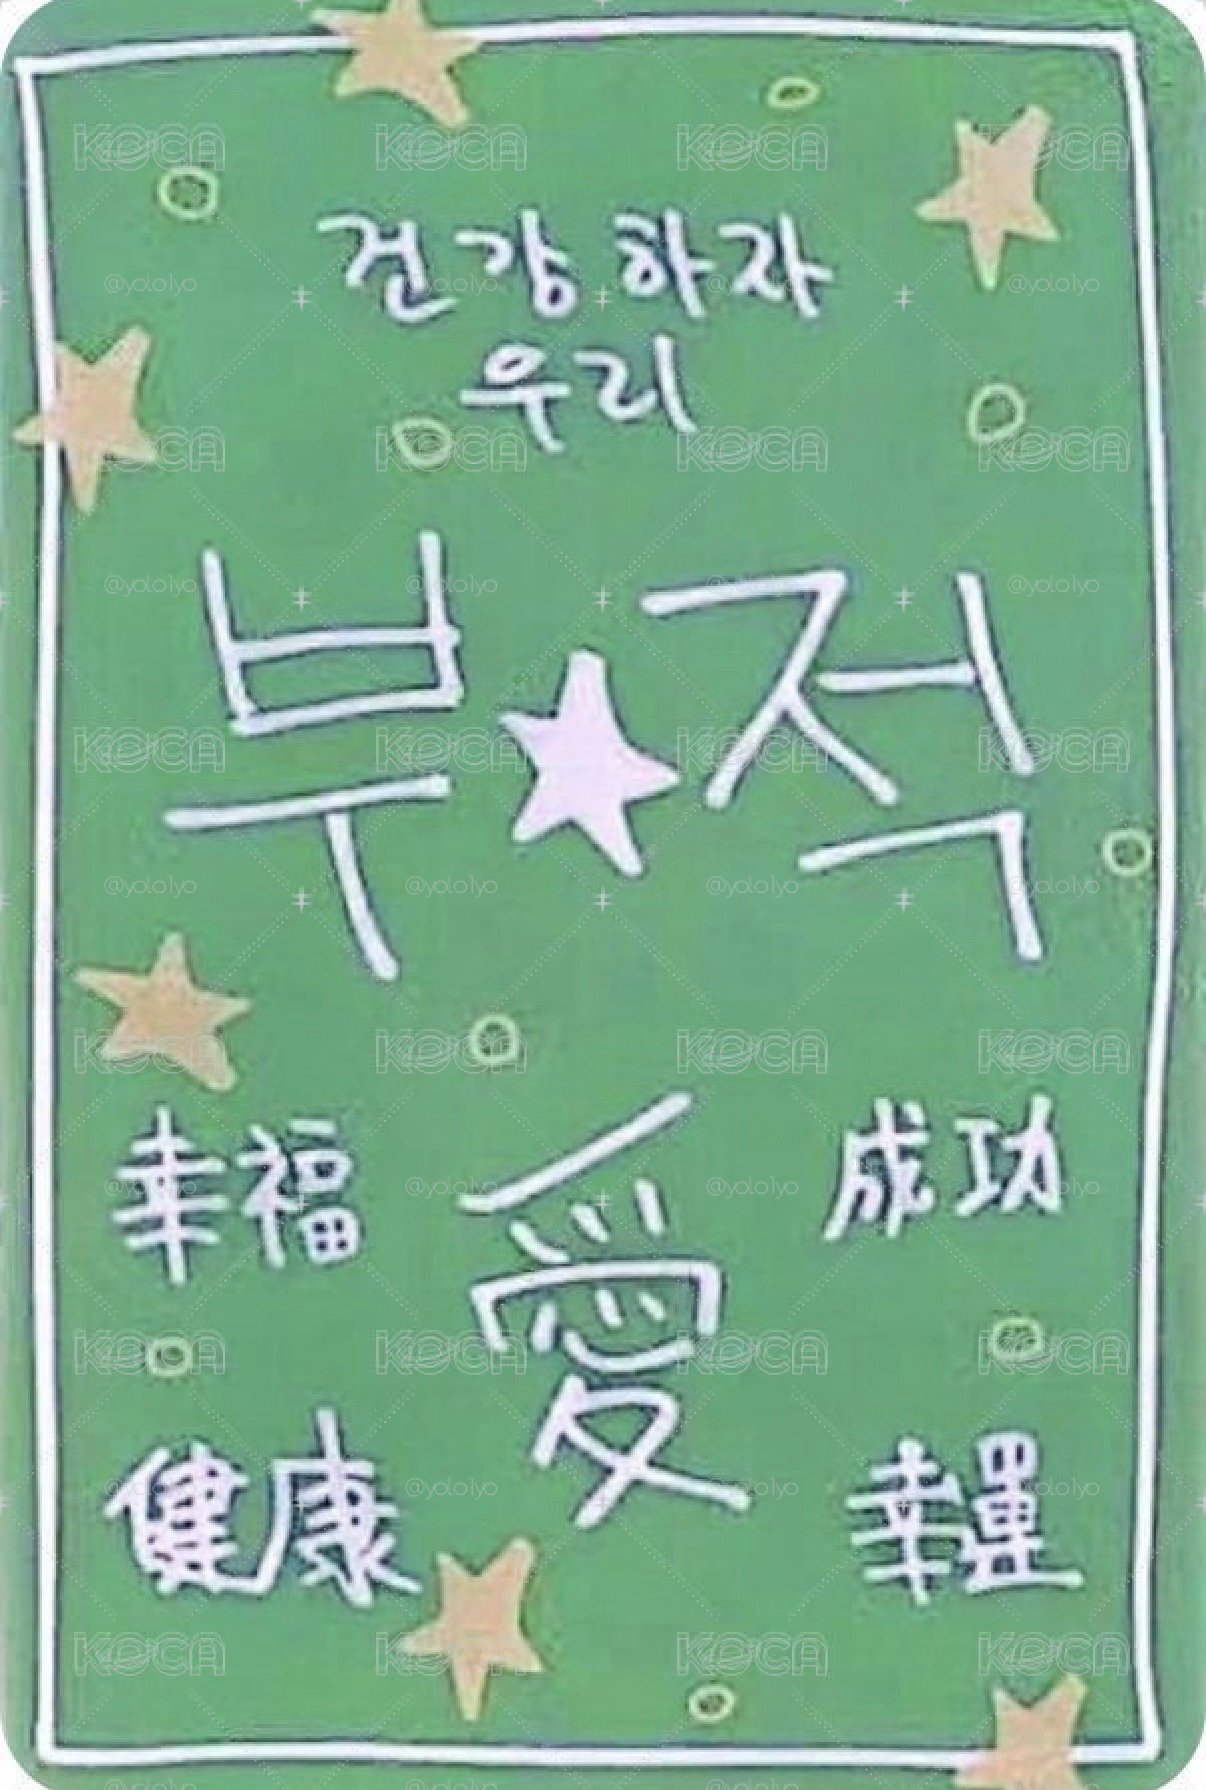 건강하자
우리
부★적
幸福 愛 成功
健康 幸運
KOCA
@yololyo